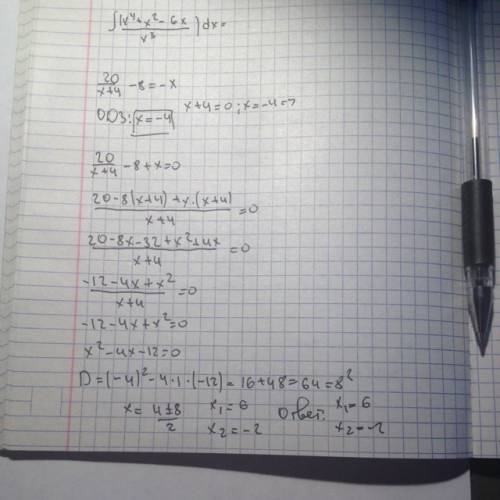 ∫(x⁴+x²-6x / x³)dx=
20/(x+4) -8=-x
x+4=0; x=-4=>
ОДЗ: x=-4
20/(x+4) -8+x=0
(20-8(x+4)+x·(x+4))/(x+4) =0
(20-8x-32+x²+4x)/(x+4) =0
(-12-4x+x²)/(x+4) =0
-12-4x+x²=0
x²-4x-12=0
D=(-4)²-4·1·(-12)=16+48=64=8²
x= (4±8)/2 x₁=6 x₂=-2 Ответ: x₁=6 x₂=-2